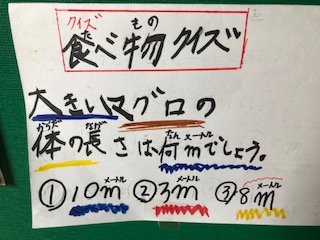 クイズ
食べ物クイズ
た もの
大きいマグロの
体の長さは何mでしょう。
からだ なが なん メートル
①10m ②3m ③8m
メートル メートル メートル